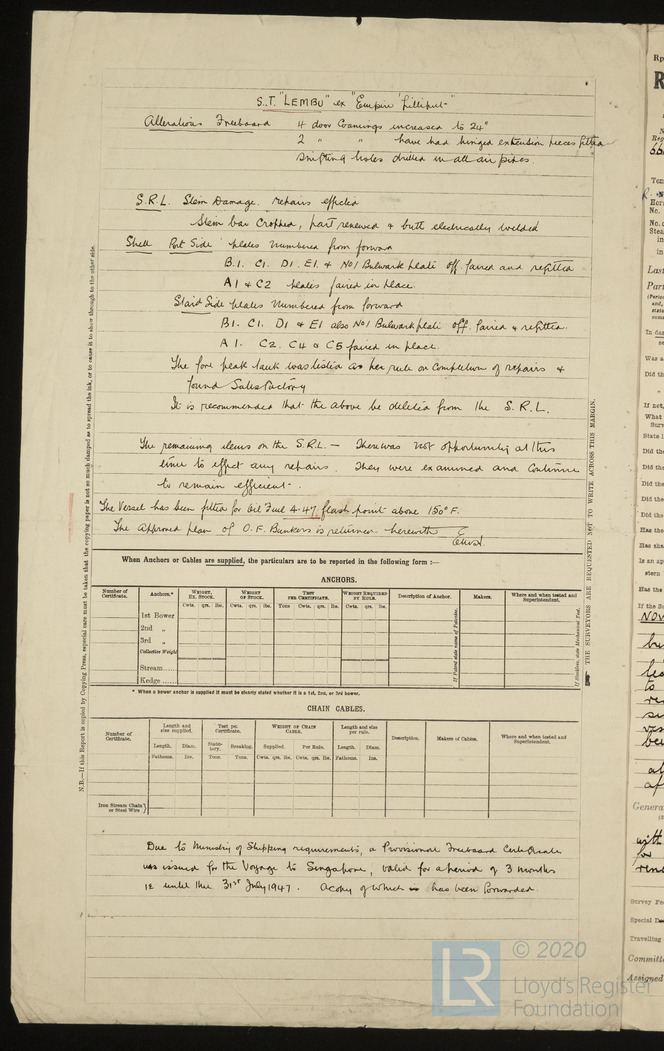 S.T. "LEMBU" ex "Empire Lilliput"
Alterations Freeboard 4 door Coamings increased to 24"
2 " " have had hinged extension pieces fitted
Snifting holes drilled in all air pipes.
S.R.L. Stem Damage. repairs effected
Stem bar Cropped, part renewed & butt electrically welded
Shell Port Side plates numbered from forward
B.1. C1. D1. E1. & No1 Bulwark plate off faired and refitted
A1 & C2 plates faired in place.
Starbd Side plates numbered from forward
B1. C1. D1 & E1 also No1 Bulwark plate off. faired & refitted.
A1. C2. C4 & C5 faired in place.
The fore peak tank was tested as per rule on Completion of repairs &
found Satisfactory
It is recommended that the above be deleted from the S.R.L.
The remaining items on the S.R.L. – There was not opportunity at this
time to effect any repairs. They were examined and Continue
to remain efficient.
The Vessel has been fitted for Oil Fuel 4.47 flash point above 150°F.
The Approved plan of O.F. Bunkers is returned herewith
When Anchors or Cables are supplied, the particulars are to be reported in the following form :—
ANCHORS.
Number of Certificate. Anchors.* WEIGHT, EX. STOCK. WEIGHT OF STOCK. TEST PER CERTIFICATE. WEIGHT REQUIRED BY RULE. Description of Anchor. Makers. Where and when tested and Superintendent.
Cwts. qrs. lbs. Cwts. qrs. lbs. Tons Cwts. qrs. lbs. Cwts. qrs. lbs.
1st Bower
2nd "
3rd "
Collective Weight
Stream......
Kedge ......
If Patent state name of Patentee.
If Stockless, state Mechanical Test.
* When a bower anchor is supplied it must be clearly stated whether it is a 1st, 2nd, or 3rd bower.
CHAIN CABLES.
Number of Certificate. Length and size supplied. Test per Certificate. WEIGHT OF CHAIN CABLE. Length and size per rule. Description. Makers of Cables. Where and when tested and Superintendent.
Length. Diam. Statutory. Breaking. Supplied. Per Rule. Length. Diam.
Fathoms. Ins. Tons. Tons. Cwts. qrs. lbs. Cwts. qrs. lbs. Fathoms. Ins.
Iron Stream Chain or Steel Wire
Due to Ministry of Shipping requirements, a Provisional Freeboard Certificate
was issued for the Voyage to Singapore, valid for a period of 3 months
ie until the 31st July 1947. a copy of which is has been forwarded.
N.B.—If this Report is copied by Copying Press, especial care must be taken that the copying paper is not so much damped as to spread the ink, or to cause it to show through to the other side.
THE SURVEYORS ARE REQUESTED NOT TO WRITE ACROSS THIS MARGIN.
Rp
R
Last
Part
Was a
Did th
If not,
What
State l
Did the
Did the
Did the
Did the
Did the
Has the
Has the
Is an ap
stern
Has the
If the So
NOV
Genera
with
for
Survey Fe
Special
Travelling
Committe
Assigned
© 2020
LR
Lloyd's Register
Foundation